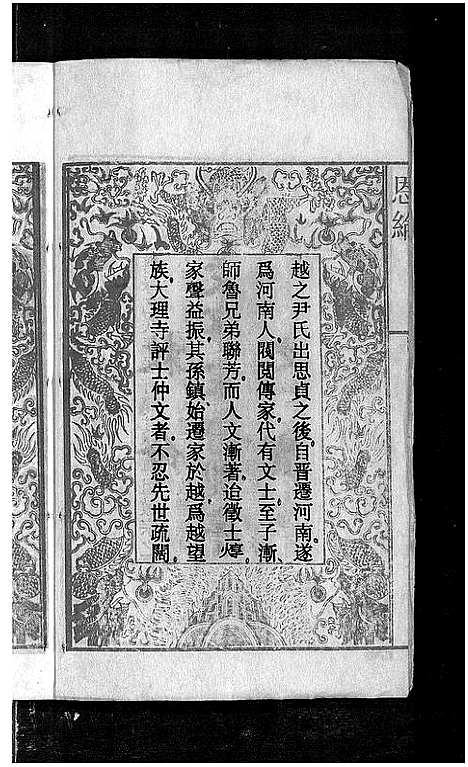 恩綸
越之尹氏出思貞之後。自晋遷河南。遂
爲河南人。閥閱傳家。代有文士。至子漸、
師魯兄弟聯芳。而人文漸著。迨徵士焞。
家聲益振。其孫鎮。始遷家於越。爲越望
族。大理寺評士仲文者。不忍先世疏闊。